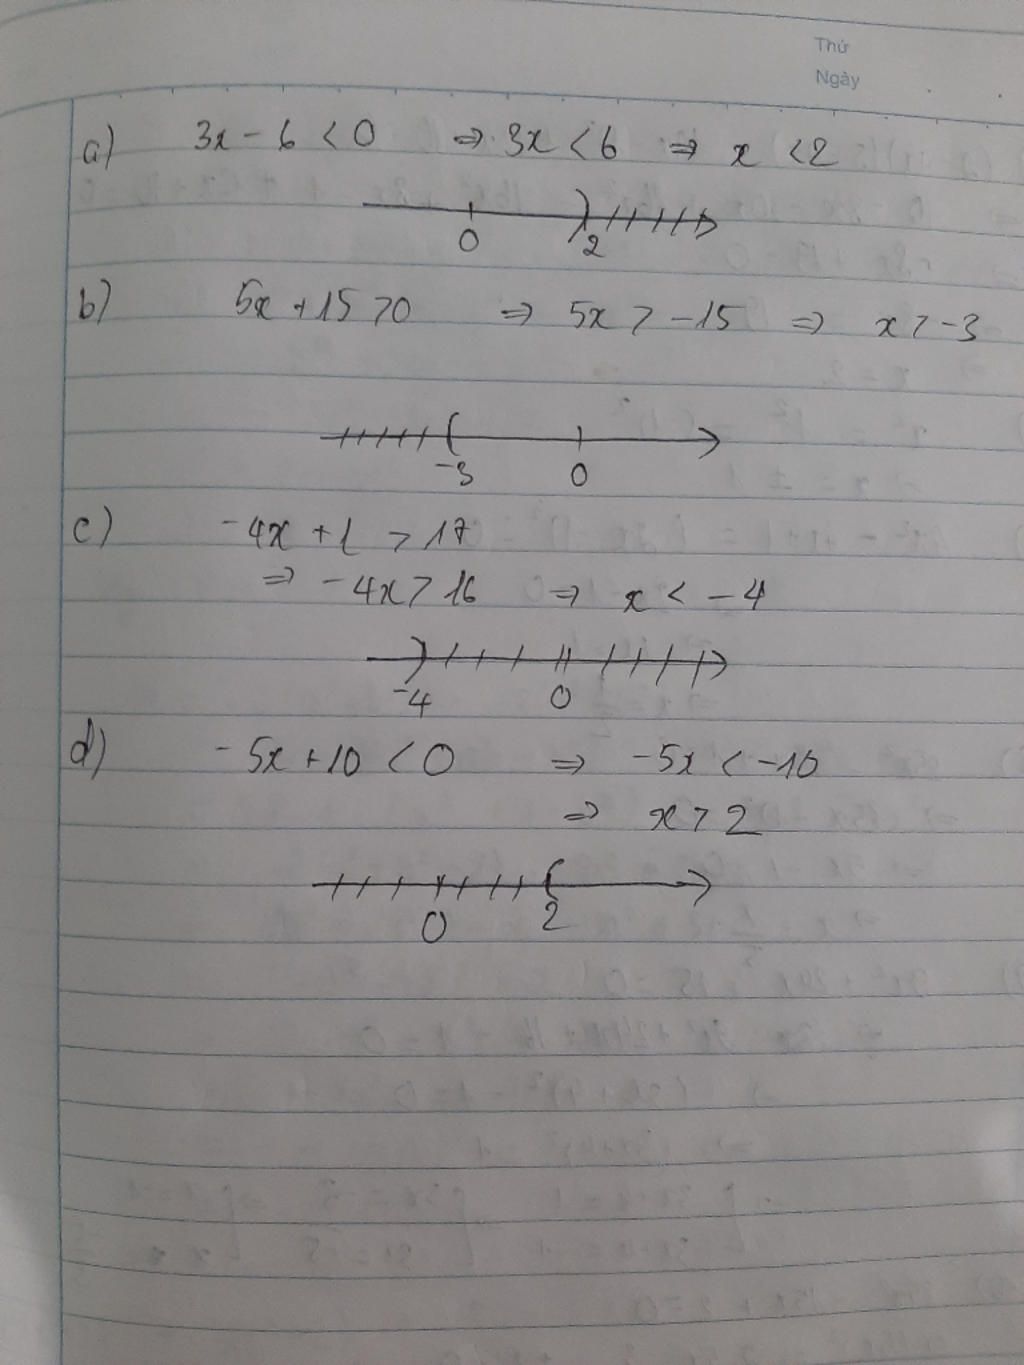 Thứ
Ngày
a) 3x - 6 < 0 => 3x < 6 => x < 2
0 2
b) 5x + 15 > 0 => 5x > -15 => x > -3
-3 0
c) -4x + 1 > 17
=> -4x > 16 => x < -4
-4 0
d) -5x + 10 < 0 => -5x < -10
=> x > 2
0 2